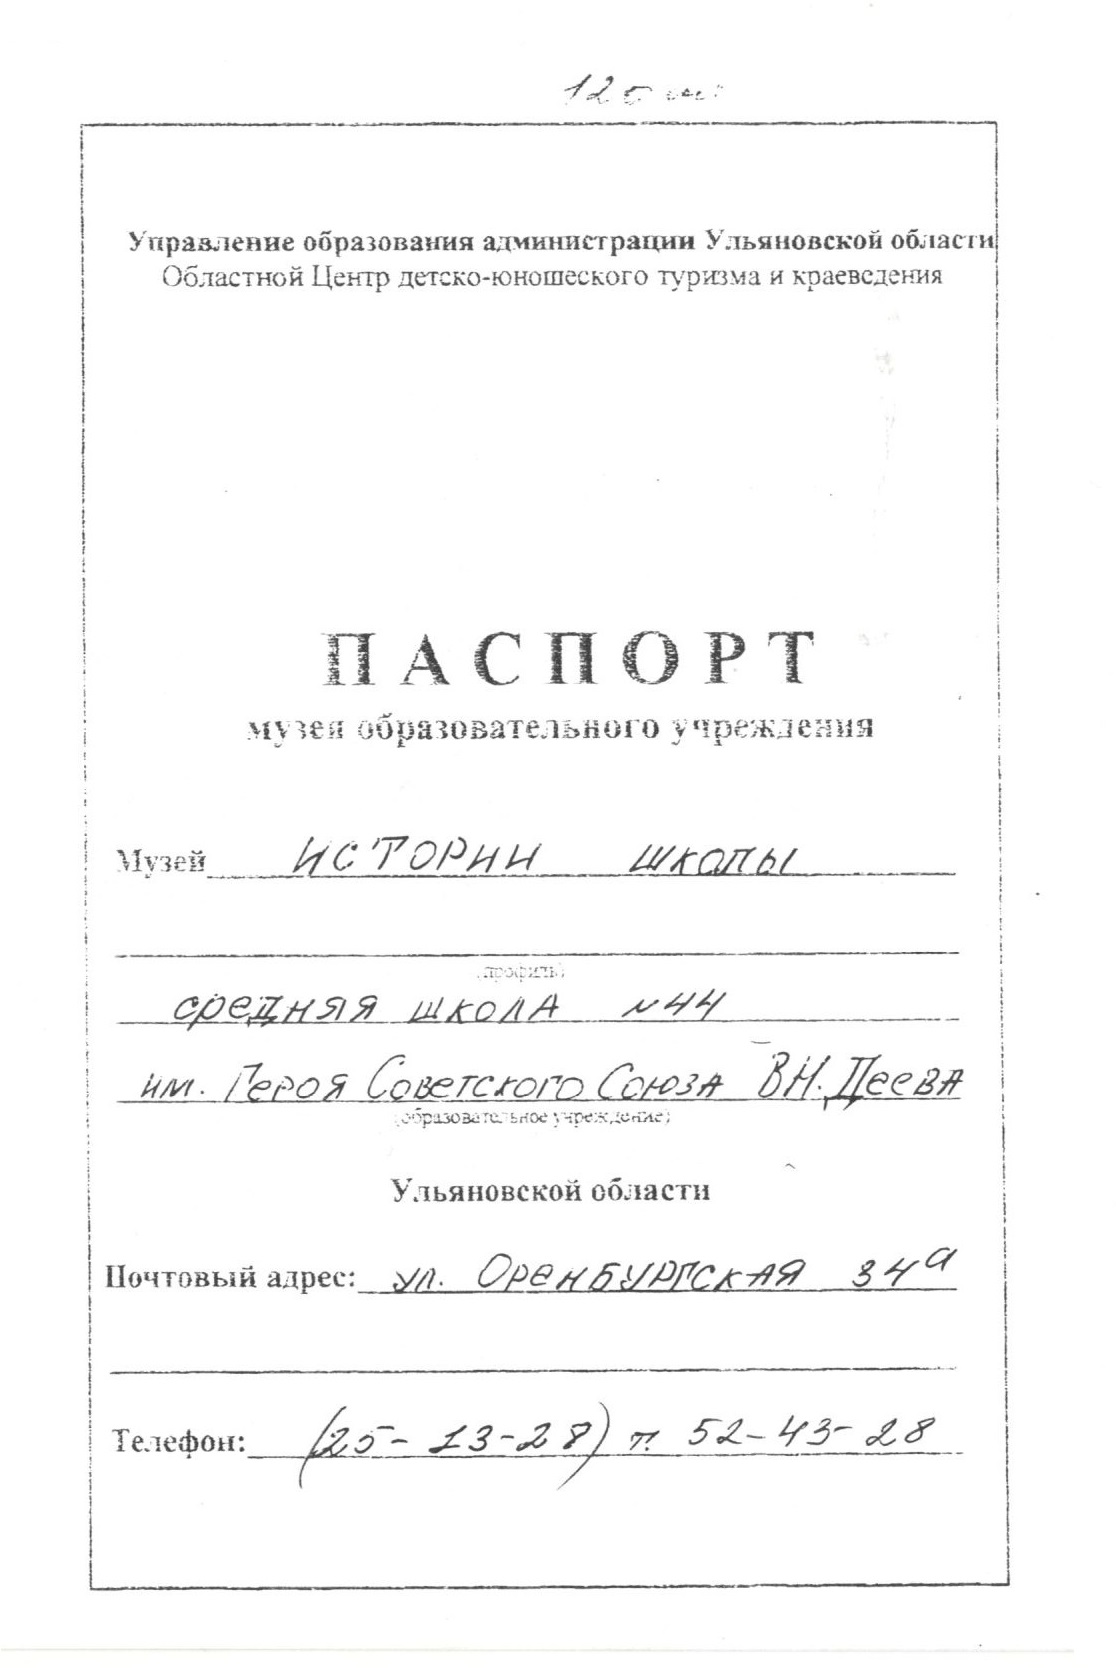 Управление образования администрации Ульяновской области
Областной Центр детско-юношеского туризма и краеведения
ПАСПОРТ
музея образовательного учреждения
Музей ИСТОРИИ ШКОЛЫ
(профиль)
СРЕДНЯЯ ШКОЛА №44
им. Героя Советского Союза В.Н. Деева
(образовательное учреждение)
Ульяновской области
Почтовый адрес: ул. Оренбургская 34а
Телефон: (25-13-28) т. 52-43-28